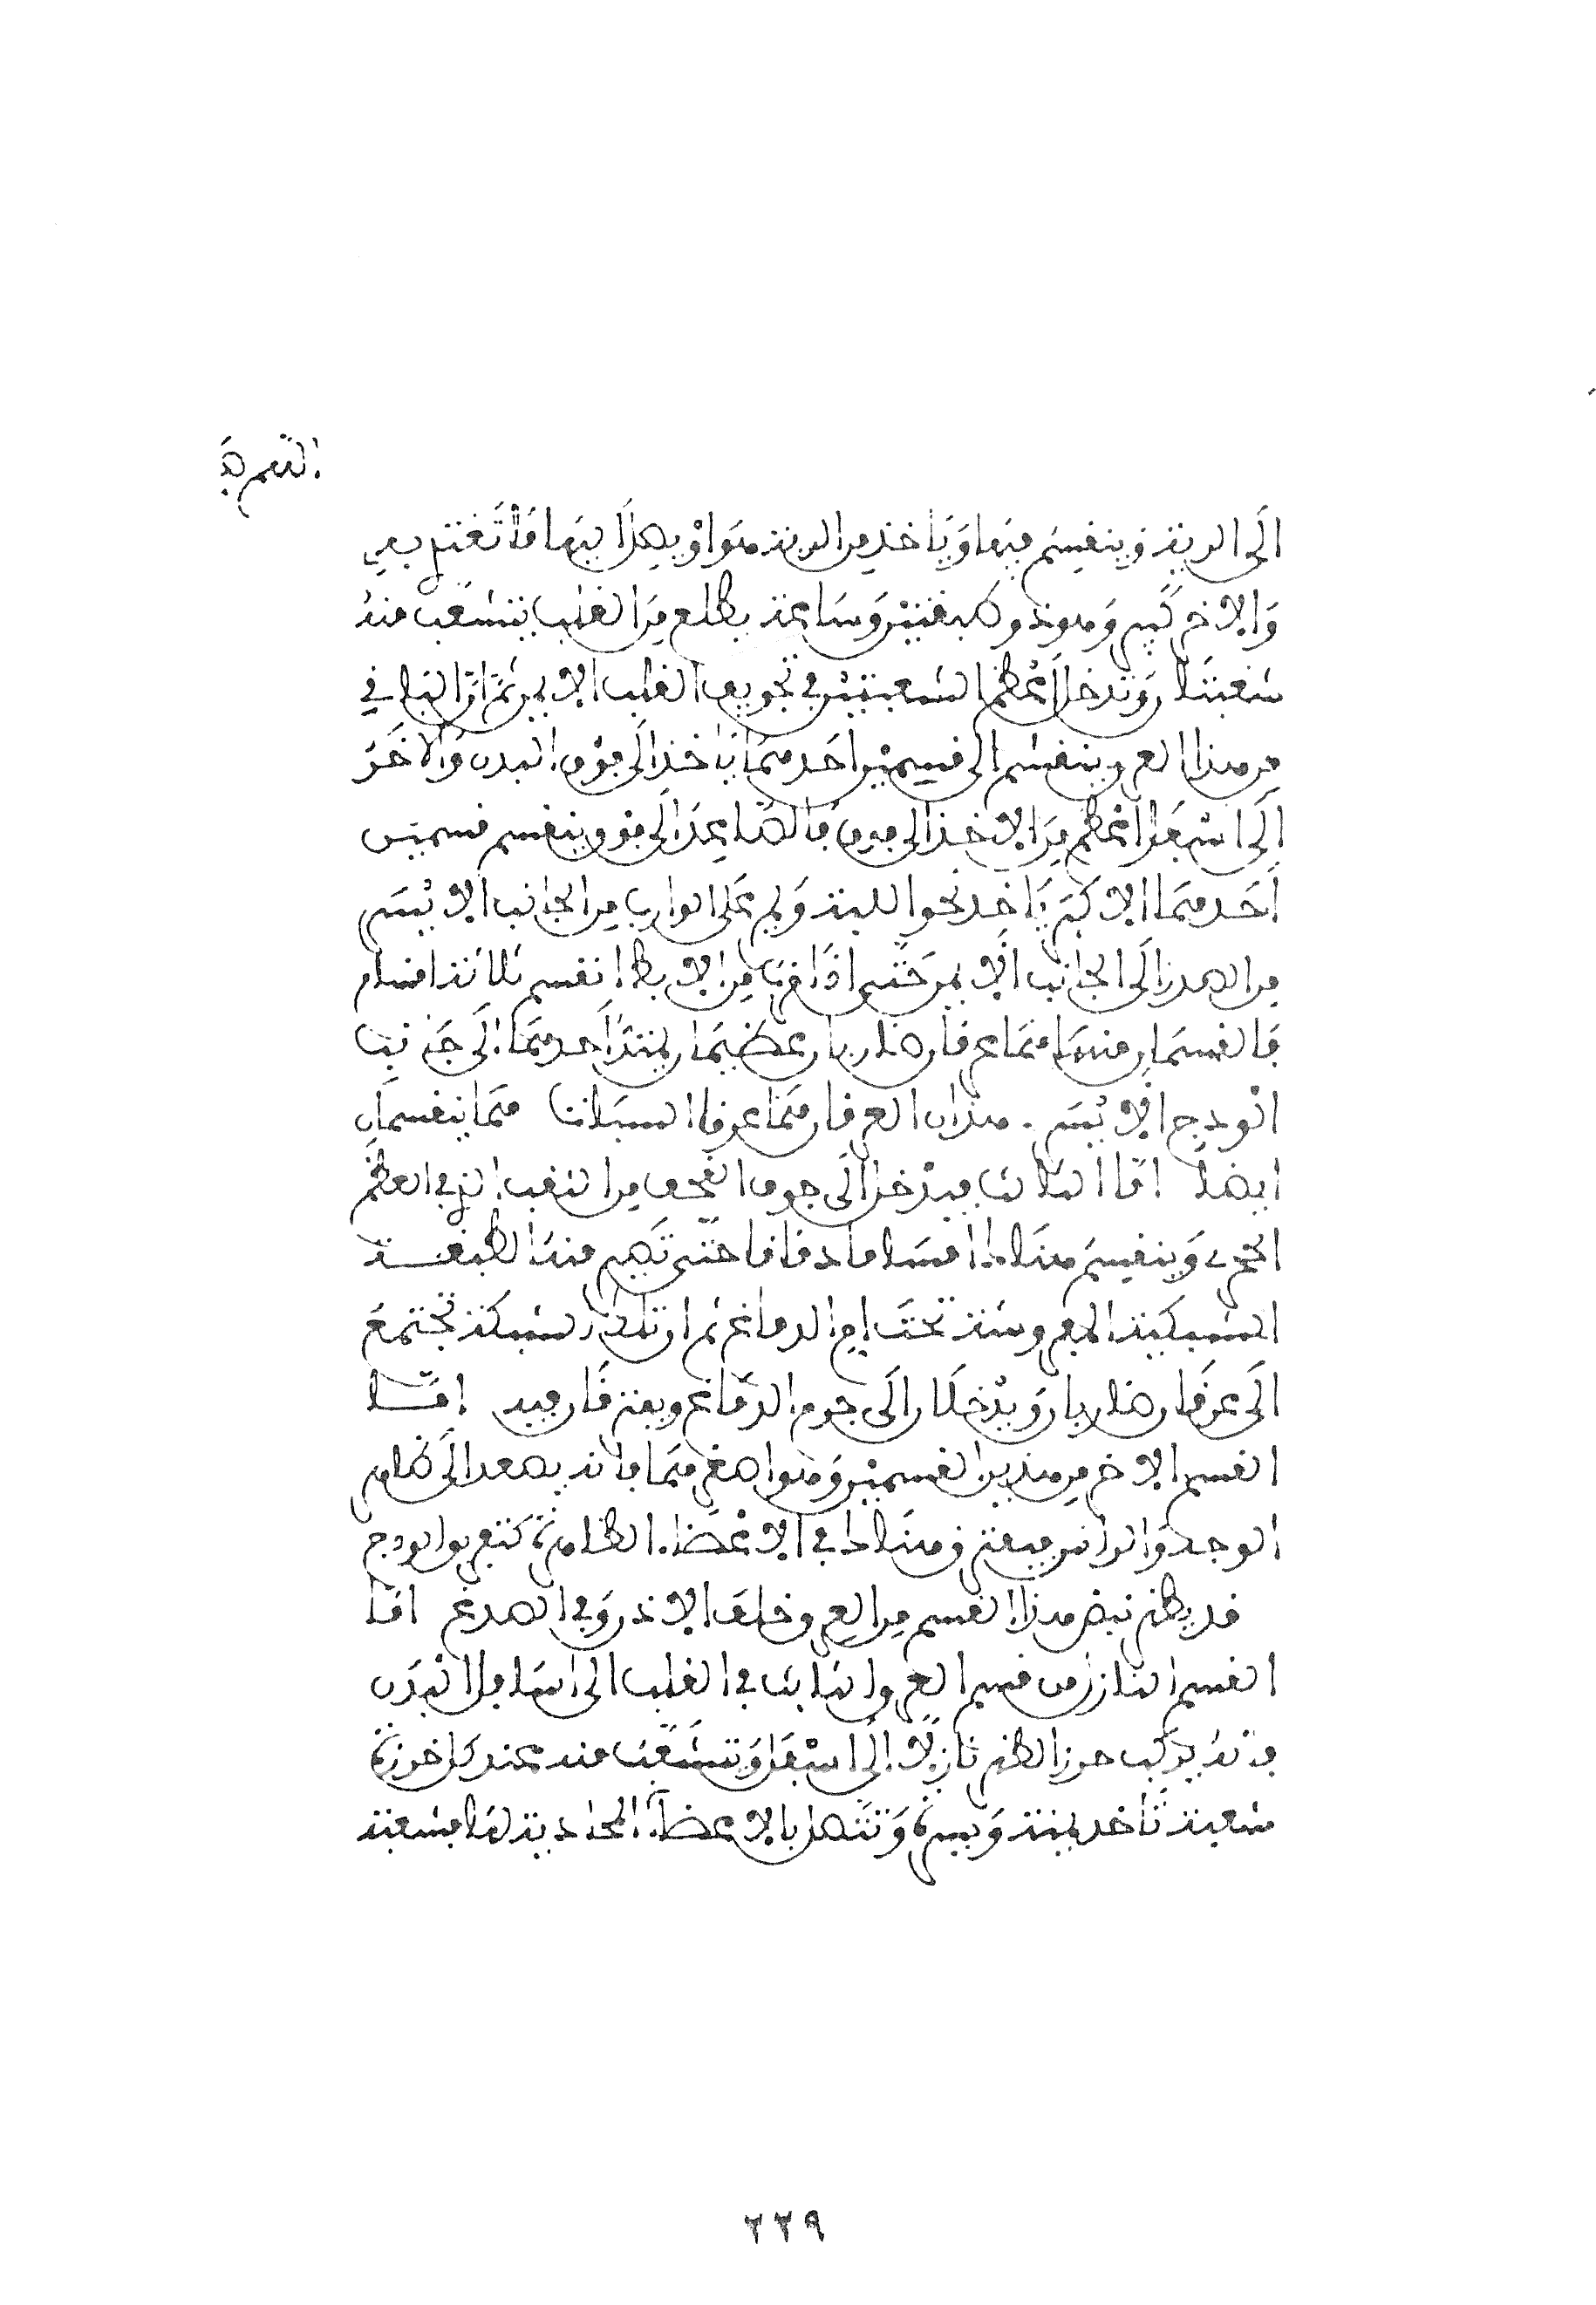 القسمة
الَى الرية وينقسم فيها وَيَأخذ من الرية هوَا وْيصلّ اليها مَا تَغتذ به
وَالاخر كَبير وَهو ذو طبقتين وَساعة يطلع مِنَ القلب يتشعب منهُ
شعبتان وَتدخل أعْظم الشعبتين في تجويف القلب الايمن ثمّ انّ الباقي
من هذا العرق ينقسم الى قسمين أحَدهمَا ياخذ الَى فوْق البدن وَالاخَرُ
الَى اسْفل اعظم مِنَ الاخذ الى فوق فالصّاعد الَى فوق ينقسم قسمين
أَحَدهمَا الاكبَر يَاخد نحو اللبة وَيمر عَلى الوارب مِن الجانب الايْسَر
من الصدر الَى الجانب الايمن حَتّى اذَا قرب من الابط انقسم ثلاثة اقسام
فَالقسمَان منهَا همَا عرقان ضاربان عظيمَان يمتدّ أحدهمَا الَى جَانب
الْودج الايْسَر . هذان العرقان همَا عرقا السبات همَا ينقسمَان
ايضا امّا الثالث فيدْخل الَى جوف القحف من الثقب الذي في العظم
الحجري وَينقسِم هنَاك اقسَاما دقاقا حتّى تَصير منهَا الطبقة
الشبكية المفروشة تحتَ ام الدماغ ثم ان تلك الشبكة تجتمعُ
الَى عرقَان ضاربان وَيدْخلَان الَى جرم الدّماغ ويفترقَان فيه امّا
القسم الاخر من هذين القسميْن وَهوَ اصغرهمَا فانه يصعد الَى ظاهر
الوجه وَالراس فيتفرق هنَاك في الاعْضا. الظاهرة كتفريق الودج
قد يظهر نبض هذا القسم من العرق خلف الاذن وَفي الصدغ امّا
القسم النازل من قسم العرق الثابت في القلب الى اسَافل الْبدَن
فانه يركب خرز الظهر نازلًا الَى اسْفل وَتتشَعّبُ منه عند كل خرزة
شعبة تَاخد يمنة وَيسرة وَتتّصل بالاعضآ. المحاذية لها فشعبة
٢٢٩